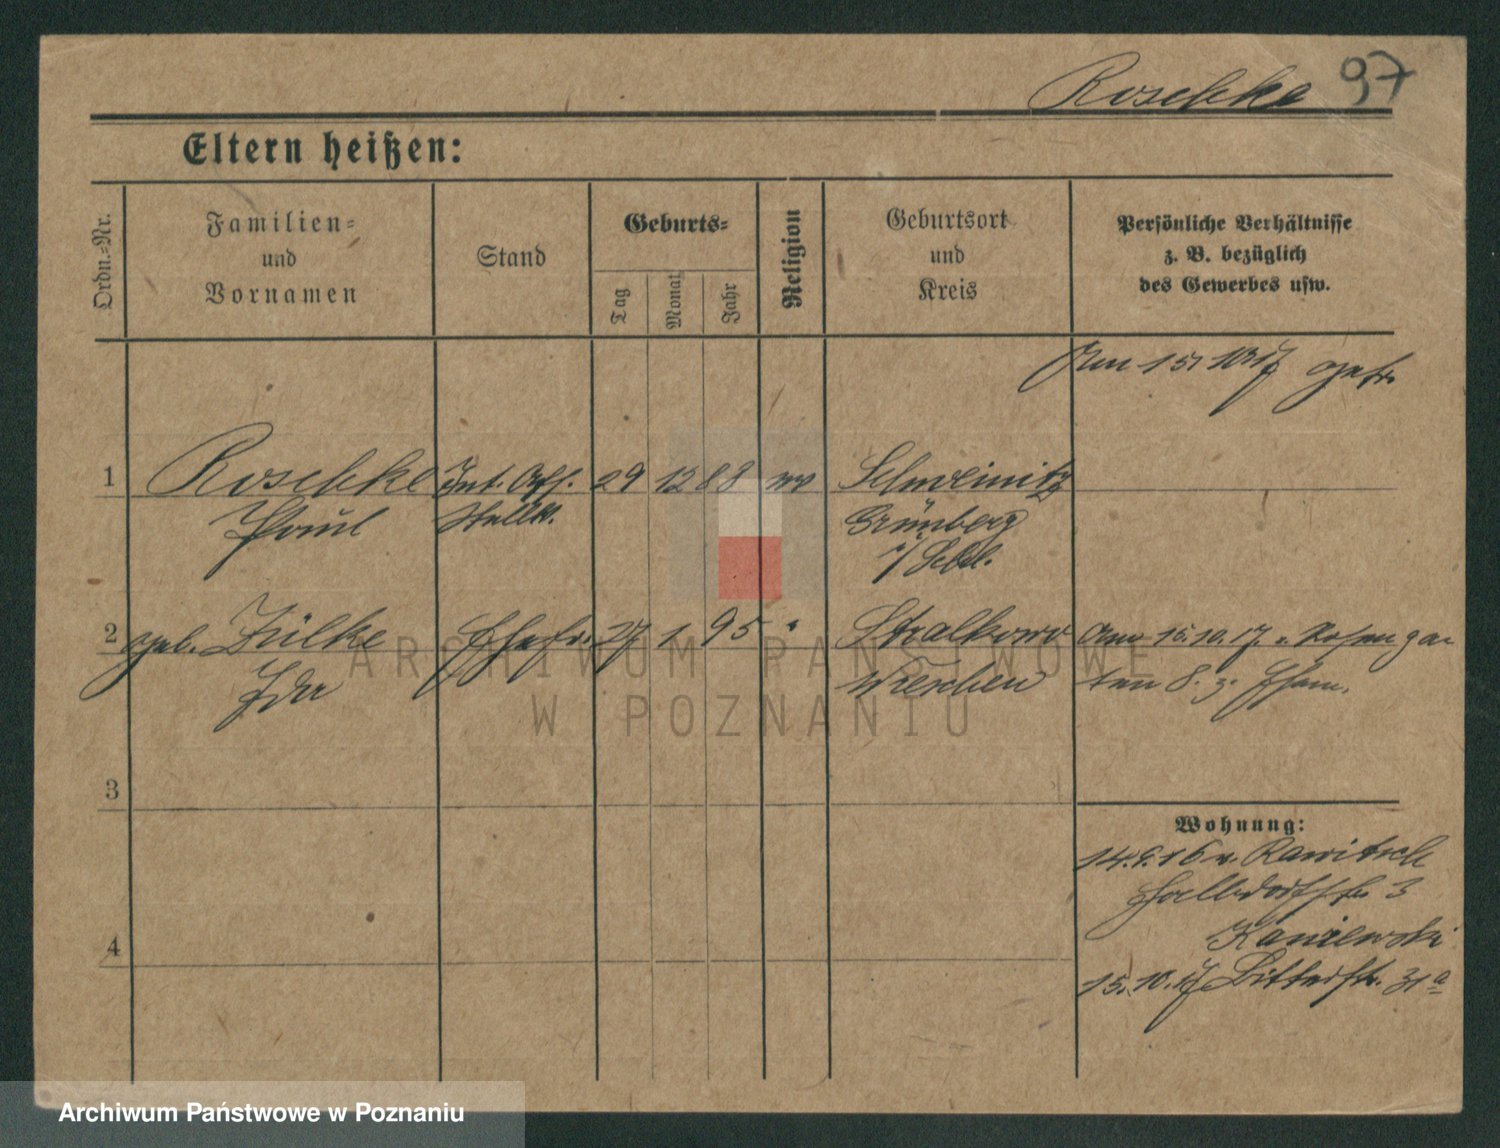 Roschke 97
Eltern heißen:
Ordn.=Nr.
Familien=
und
Vornamen
Stand
Geburts=
Tag
Monat
Jahr
Religion
Geburtsort
und
Kreis
Persönliche Verhältnisse
z. B. bezüglich
des Gewerbes usw.
Am 15. 10. 17 getr.
1 Roschke Int. 29 12 88 ev Schweinitz
Paul Stellv. Grünberg
i/Schl.
2 geb. Zülke Ehefr. 27 1 95 " Stralkowo Am 15. 10. 17. v. Rosengar
Ida Wreschen ten 8. z. Eham.
3
4
Wohnung:
14.9.16 v. Rawitsch
3
Kaniewski
15. 10. 17 Bitterstr. 31a
ARCHIWUM PAŃSTWOWE
W POZNANIU
Archiwum Państwowe w Poznaniu